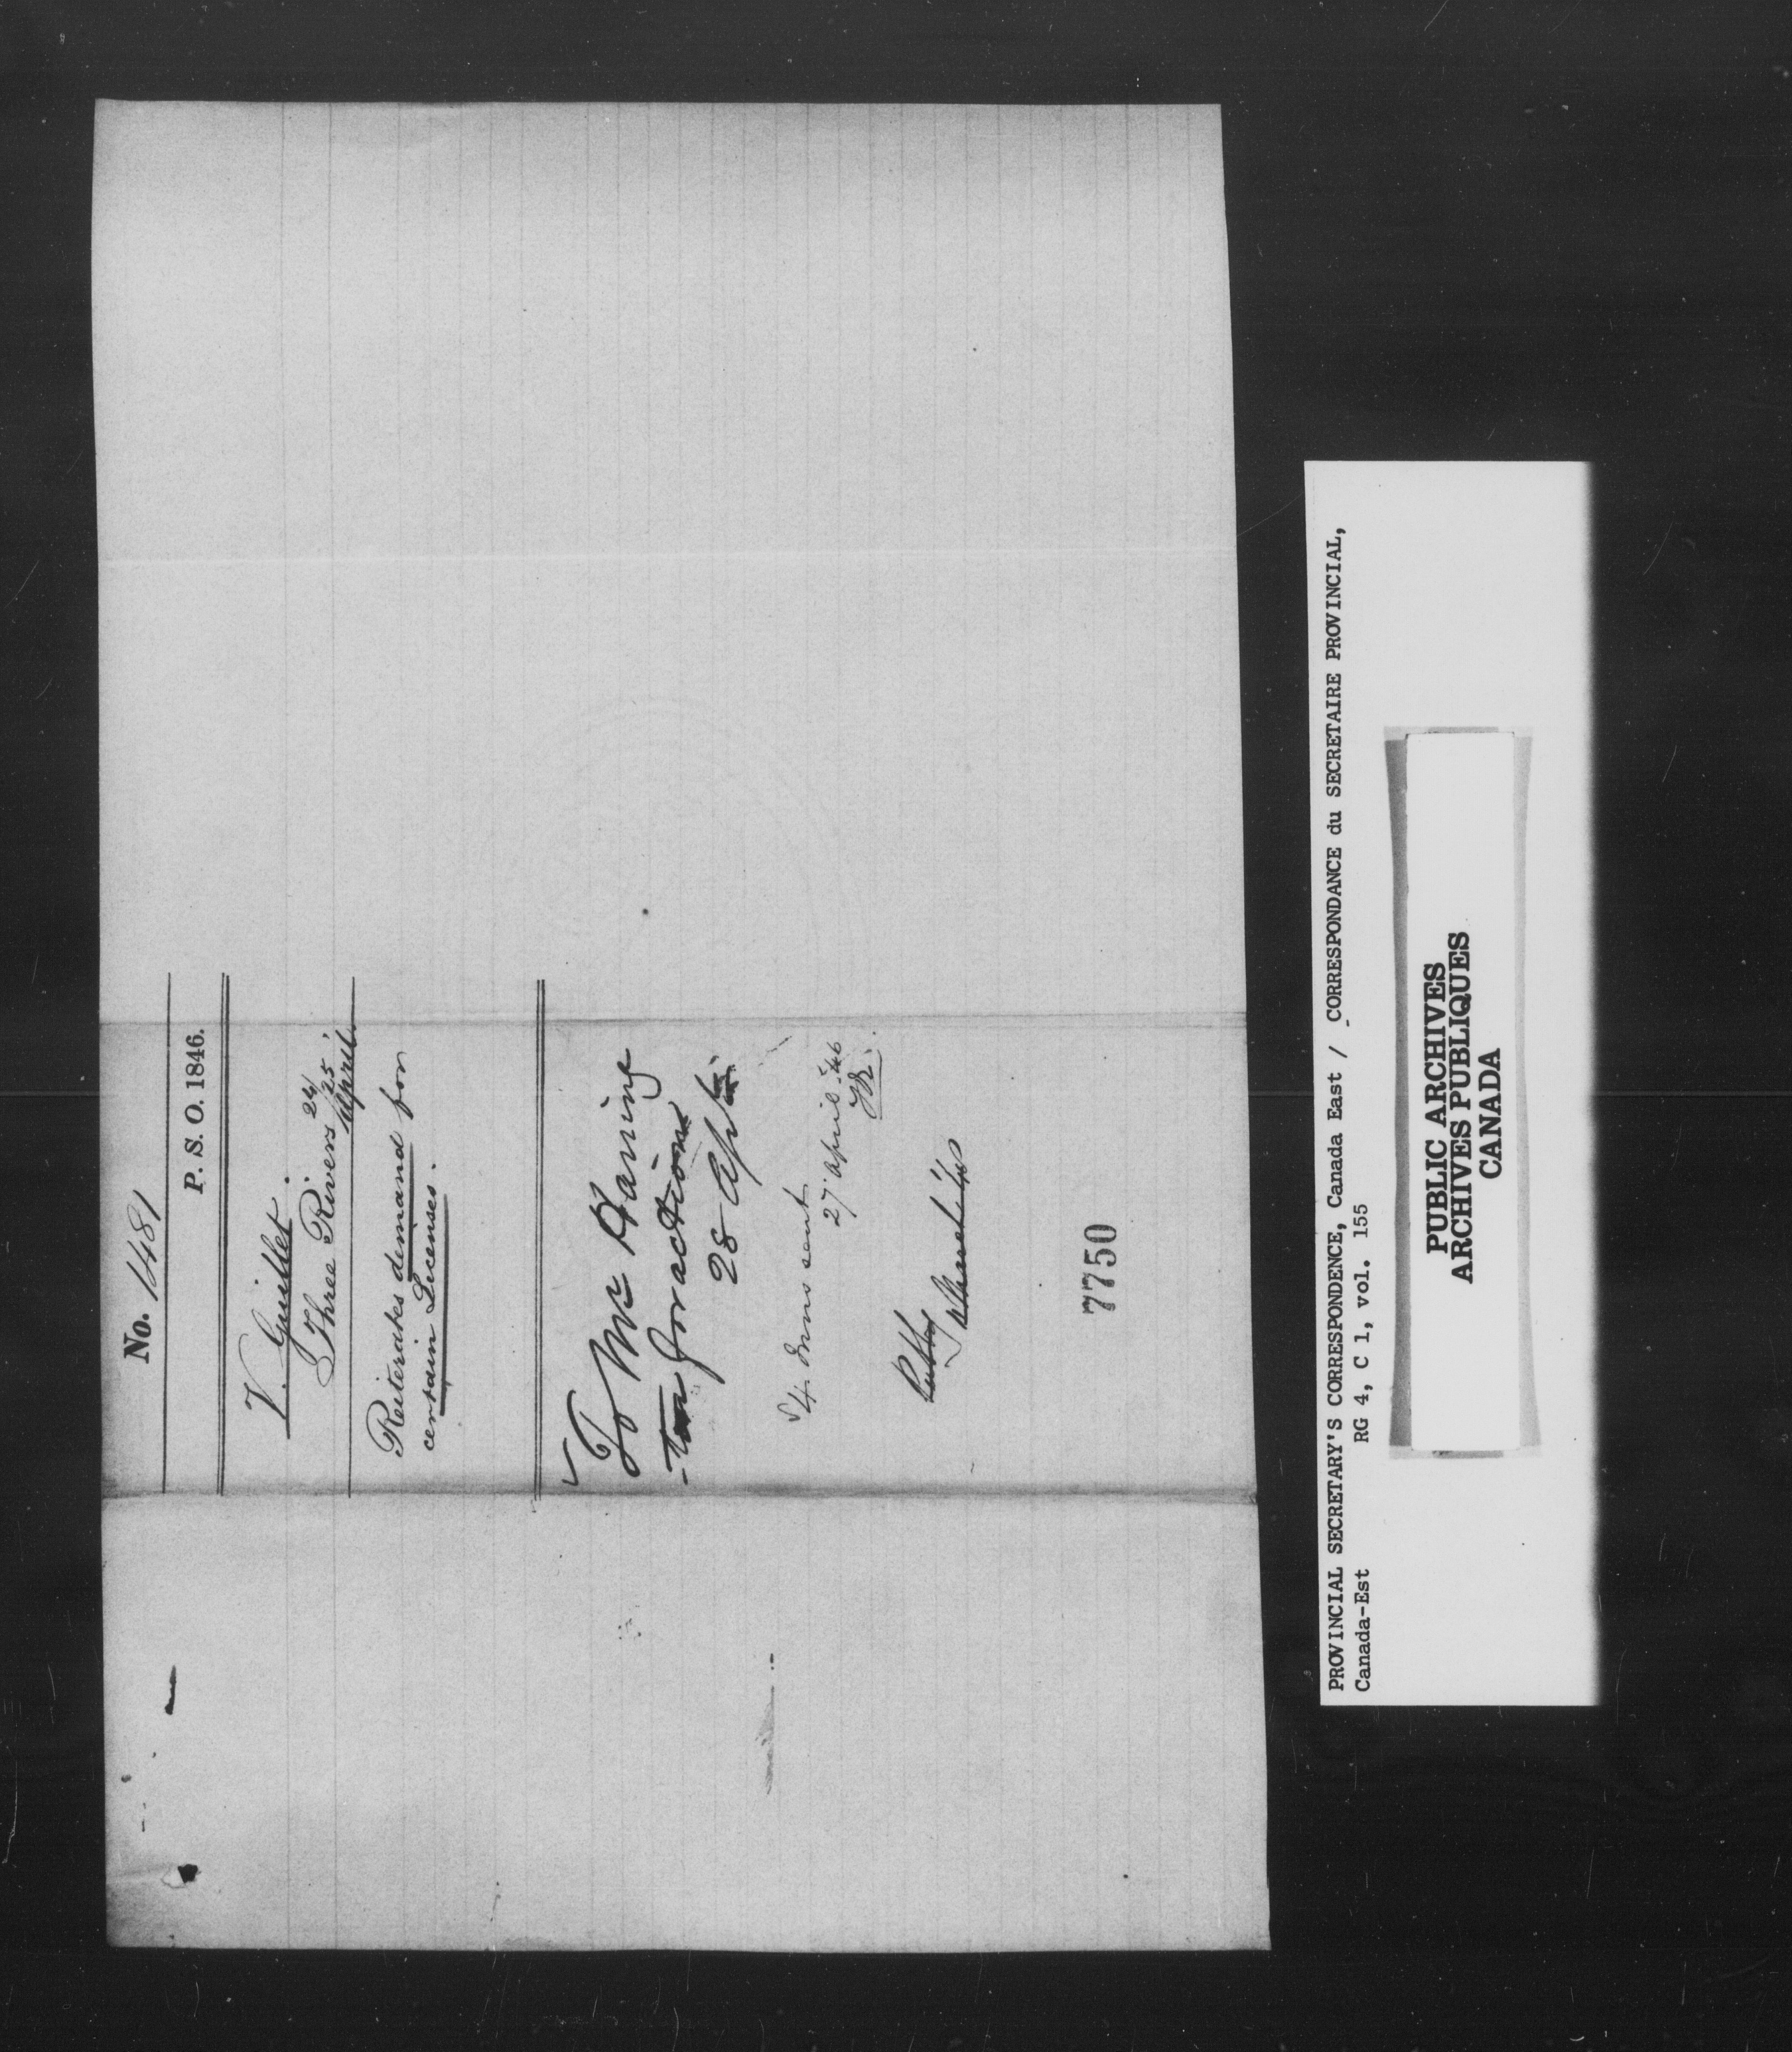 No. 1481
P. S. O. 1846.
V. Guillet.
Three Rivers 24/25 April
Reiterates demand for
certain Licenses.
To Mr
for action
28 Apl
54 sent
27 April 46
7750
PROVINCIAL SECRETARY'S CORRESPONDENCE, Canada East / CORRESPONDANCE du SECRETAIRE PROVINCIAL,
Canada-Est RG 4, C 1, vol. 155
PUBLIC ARCHIVES
ARCHIVES PUBLIQUES
CANADA